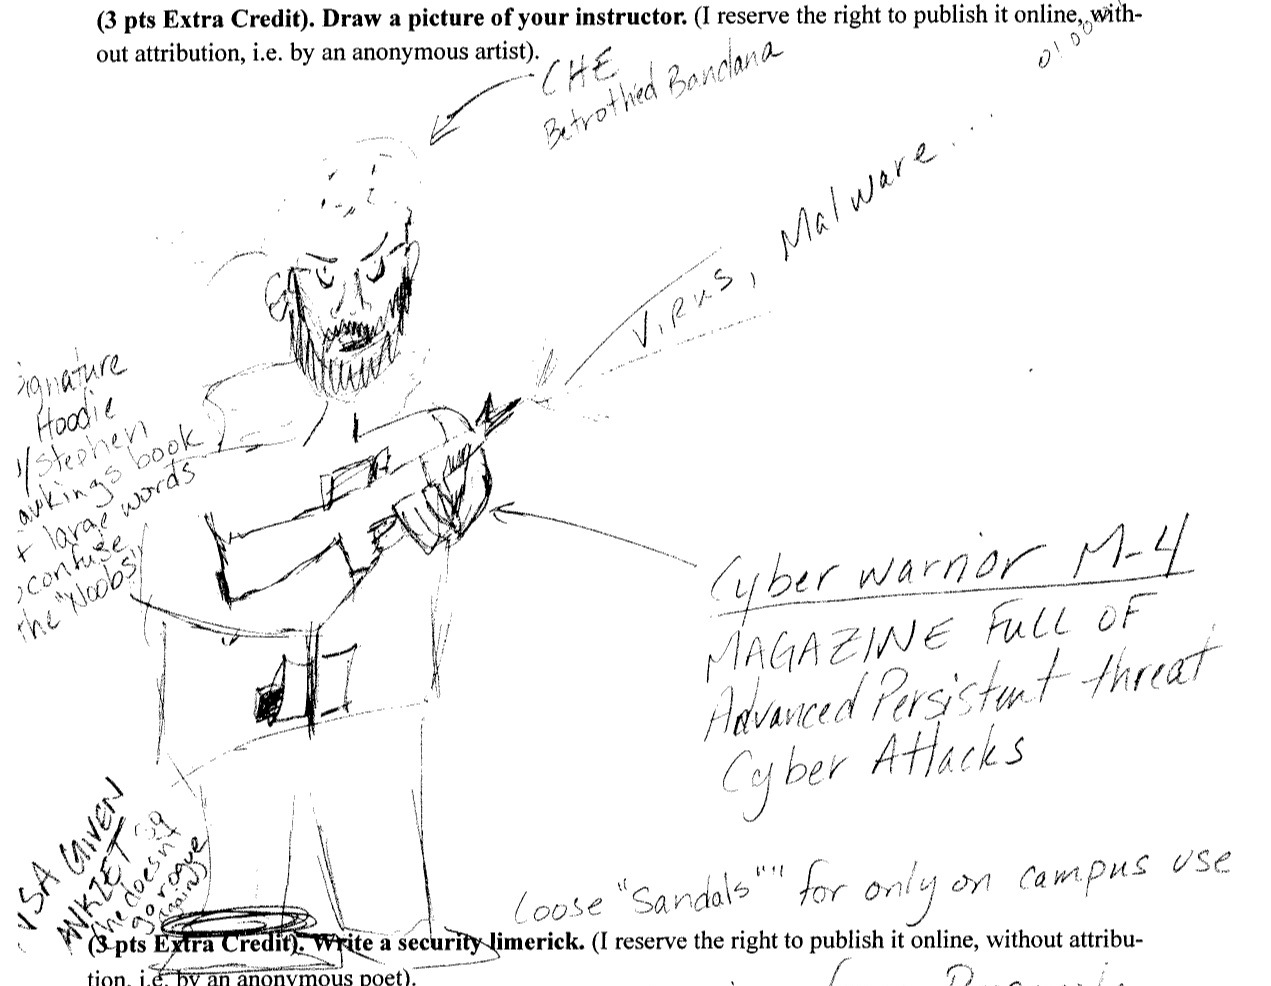 (3 pts Extra Credit). Draw a picture of your instructor. (I reserve the right to publish it online, with-
out attribution, i.e. by an anonymous artist).
CHE
Betrothied Bandana
Virus, Malware...
ignature
Hoodie
w/Stephen
awkings book
+ large words
confuse
the "Noobs"
Cyber warrior M-4
MAGAZINE FULL OF
Advanced Persistent threat
Cyber Attacks
GIVEN
ANKLET so
he doesn't
go rogue
Loose "Sandals"" for only on campus use
(3 pts Extra Credit). Write a security limerick. (I reserve the right to publish it online, without attribu-
tion, i.e. by an anonymous poet).